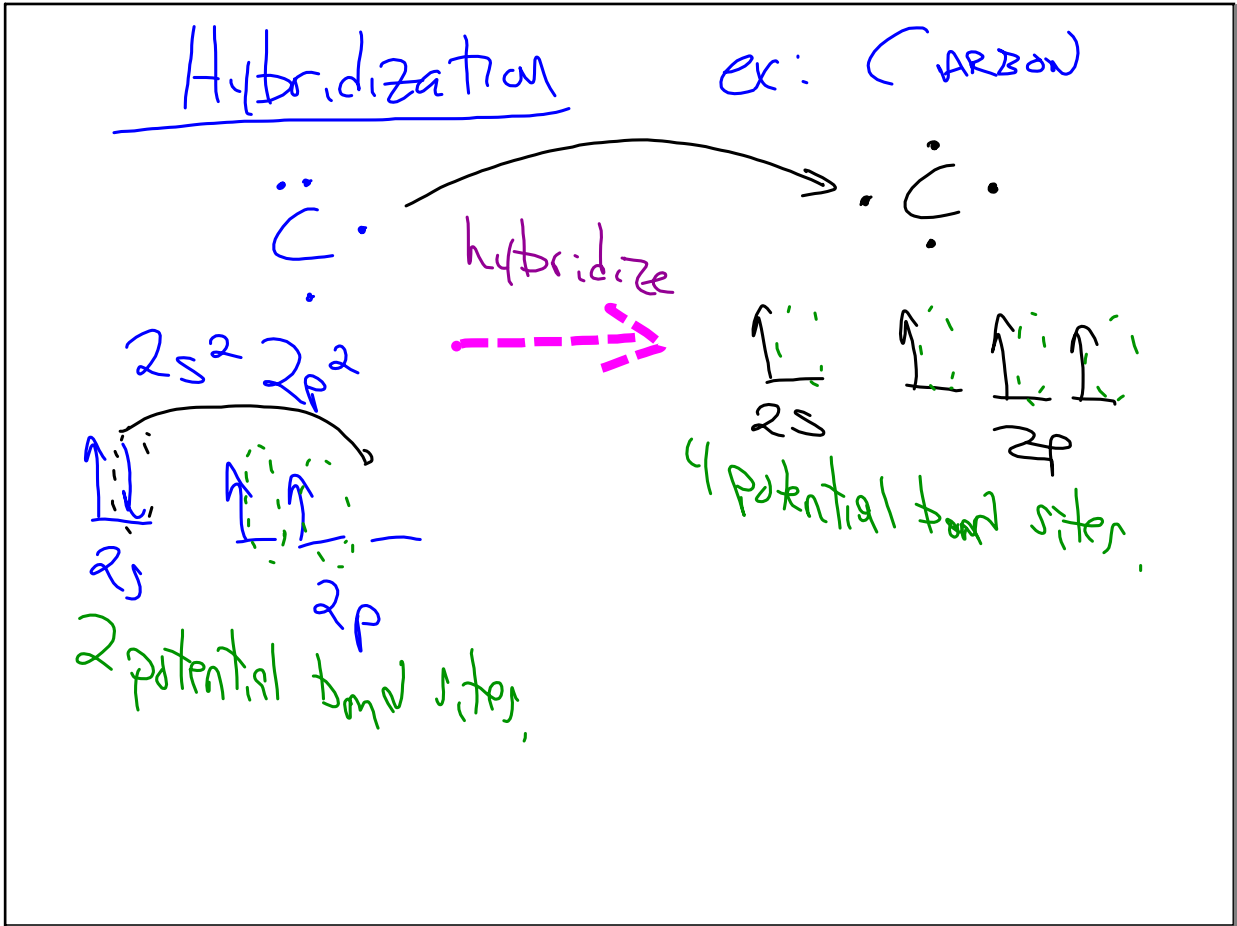 Hybridization ex: CARBON
C C
hybridize
2s² 2p²
2s 2p
2s 2p
4 potential bond sites.
2 potential bond sites.